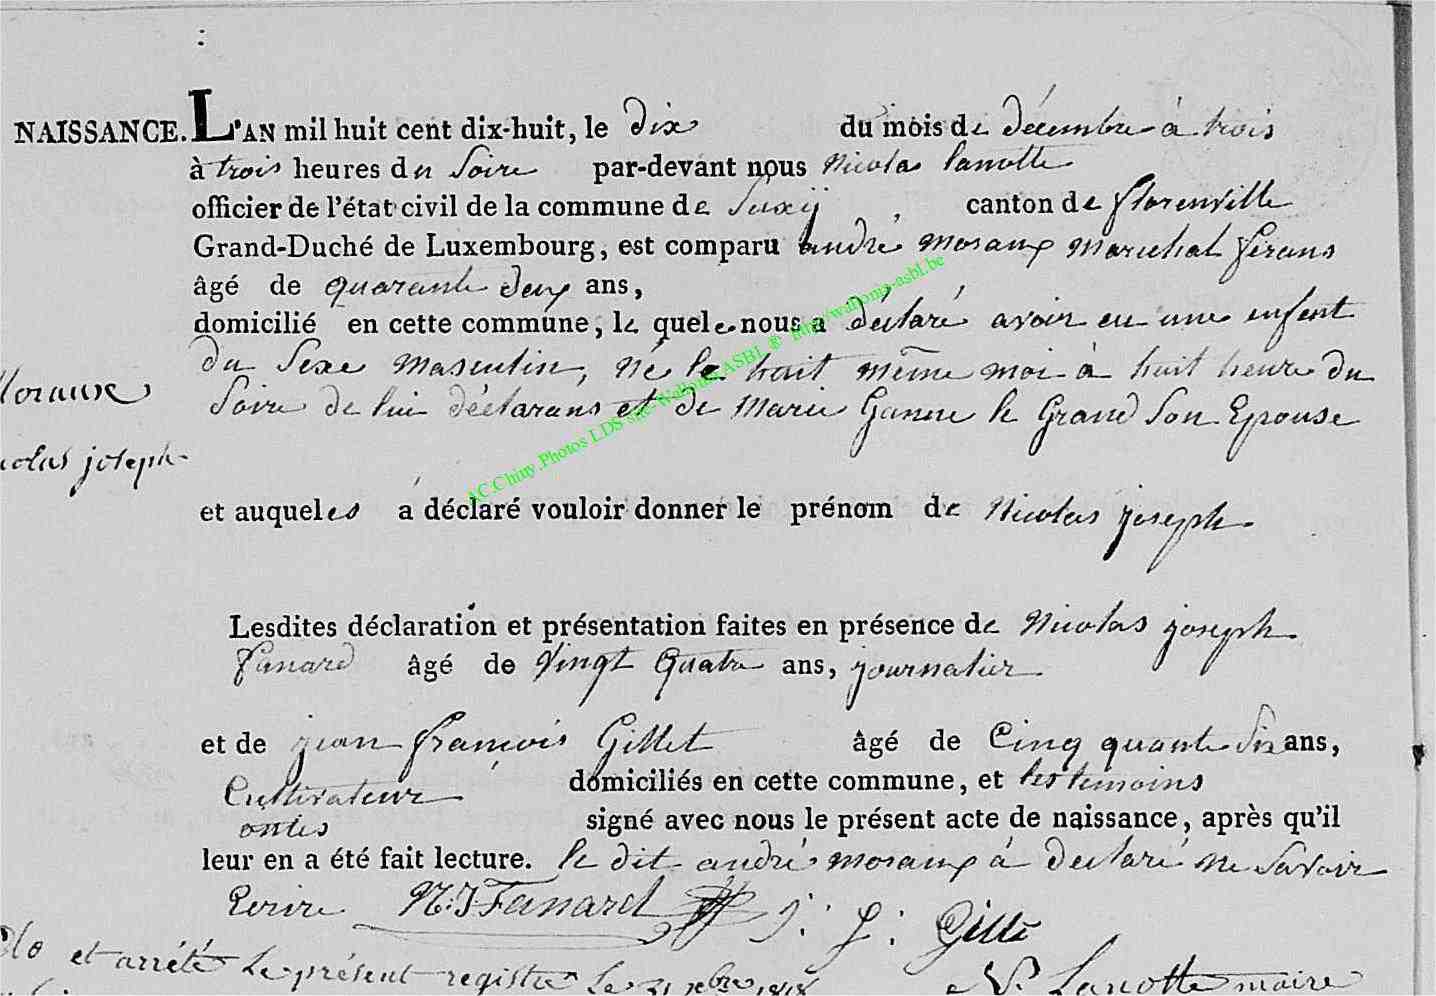 NAISSANCE. L'AN mil huit cent dix-huit, le dix du mois de décembre à trois
à trois heures du Soire par-devant nous Nicolas lanotte
officier de l'état civil de la commune de Suxÿ canton de florenville
Grand-Duché de Luxembourg, est comparu andré moraux marechal ferans
âgé de quarante deux ans,
domicilié en cette commune, le quele nous a déclaré avoir eu une enfent
du Sexe masculin, né le huit même moi à huit heure du
Soire de lui déclarans et de Marie Ganne le Grand Son Epouse
Moraux
Nicolas joseph
et auqueles a déclaré vouloir donner le prénom de Nicolas joseph
Lesdites déclaration et présentation faites en présence de Nicolas joseph
fanard âgé de vingt quatre ans, journalier
et de jean françois Gillet âgé de Cinq quante Six ans,
Cultivateur domiciliés en cette commune, et les temoins
ontes signé avec nous le présent acte de naissance, après qu'il
leur en a été fait lecture. le dit andré moraux à declaré ne Savoir
Ecrire N:J Fanard J: f: Gille
Clo et arrété le présent registre le 31 xbre 1818 N. Lanotte maire
AC.Chiny.Photos LDS site Wallonia ASBL ® http://wallonia-asbl.be